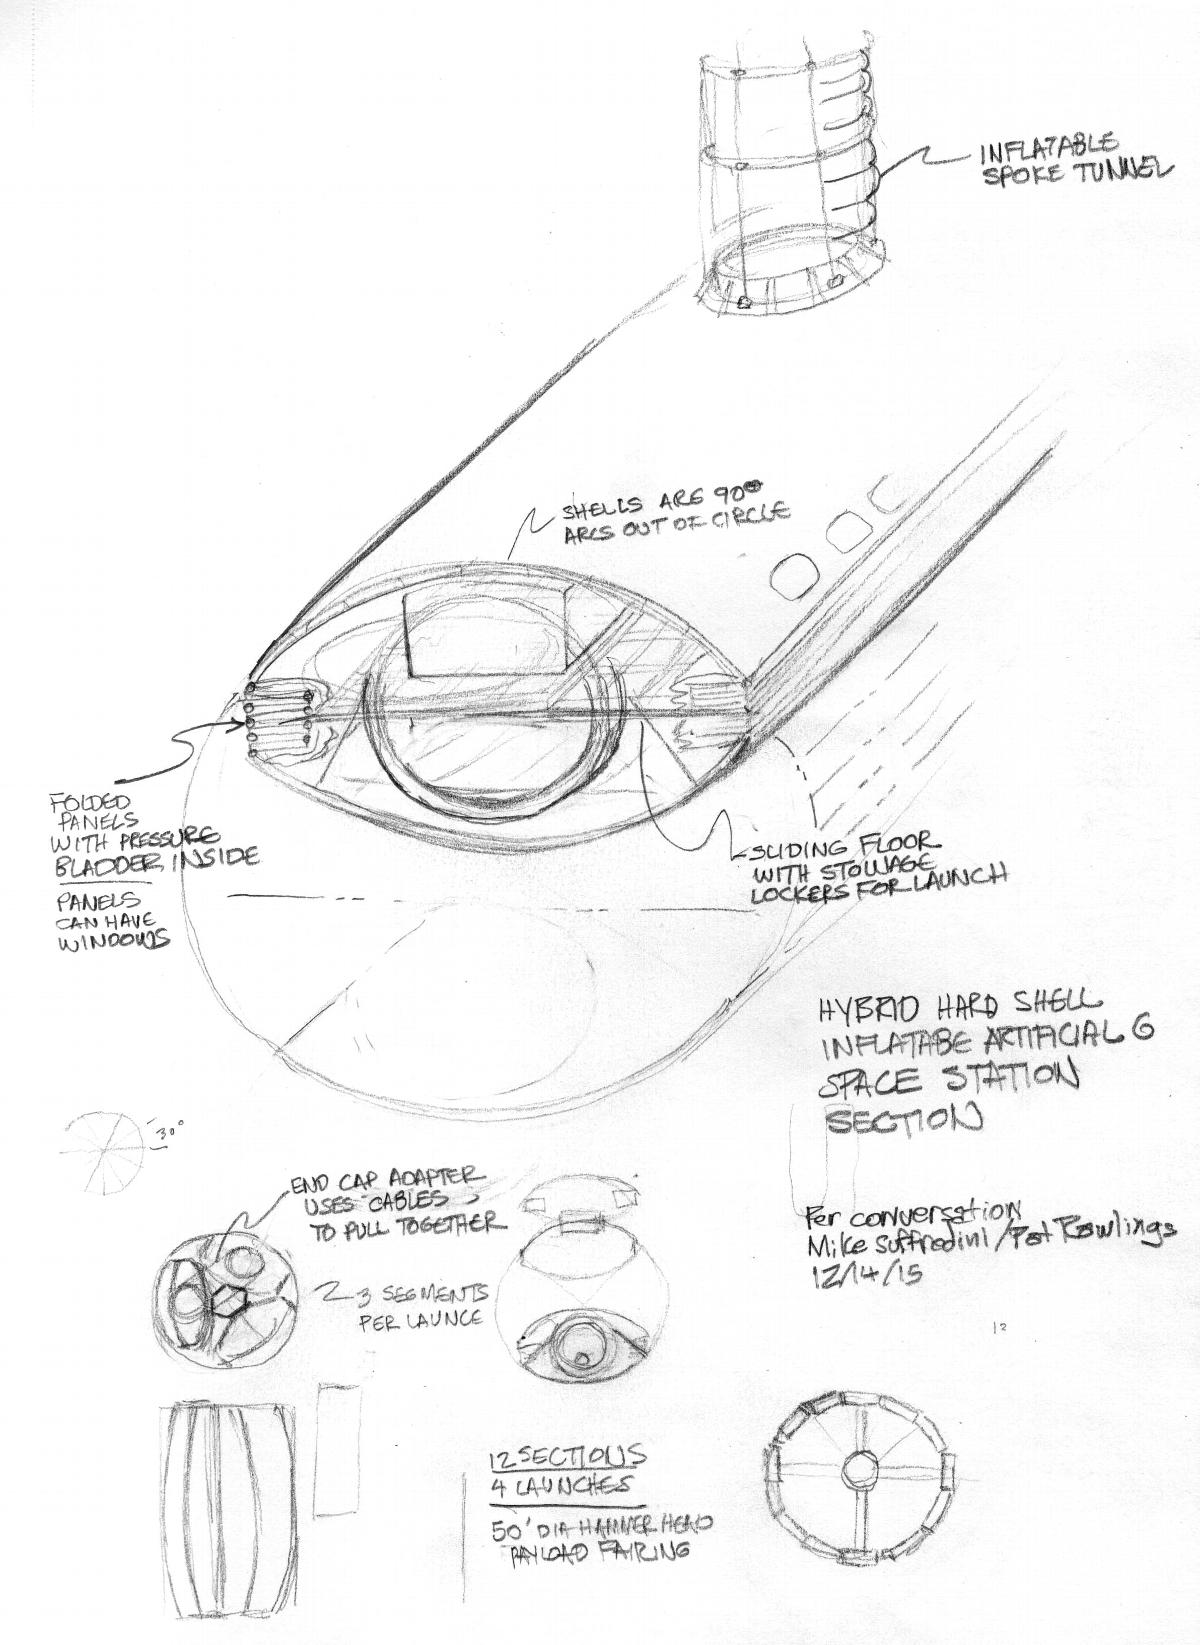 INFLATABLE
SPOKE TUNNEL
SHELLS ARE 90°
ARCS OUT OF CIRCLE
FOLDED
PANELS
WITH PRESSURE
BLADDER INSIDE
PANELS
CAN HAVE
WINDOWS
SLIDING FLOOR
WITH STOWAGE
LOCKERS FOR LAUNCH
HYBRID HARD SHELL
INFLATABE ARTIFICIAL G
SPACE STATION
SECTION
30°
END CAP ADAPTER
USES CABLES
TO PULL TOGETHER
3 SEGMENTS
PER LAUNCE
Per conversation
Mike Suffredini/Pat Rawlings
12/14/15
12
12 SECTIONS
4 LAUNCHES
50' DIA HAMMER HEAD
PAYLOAD FAIRING